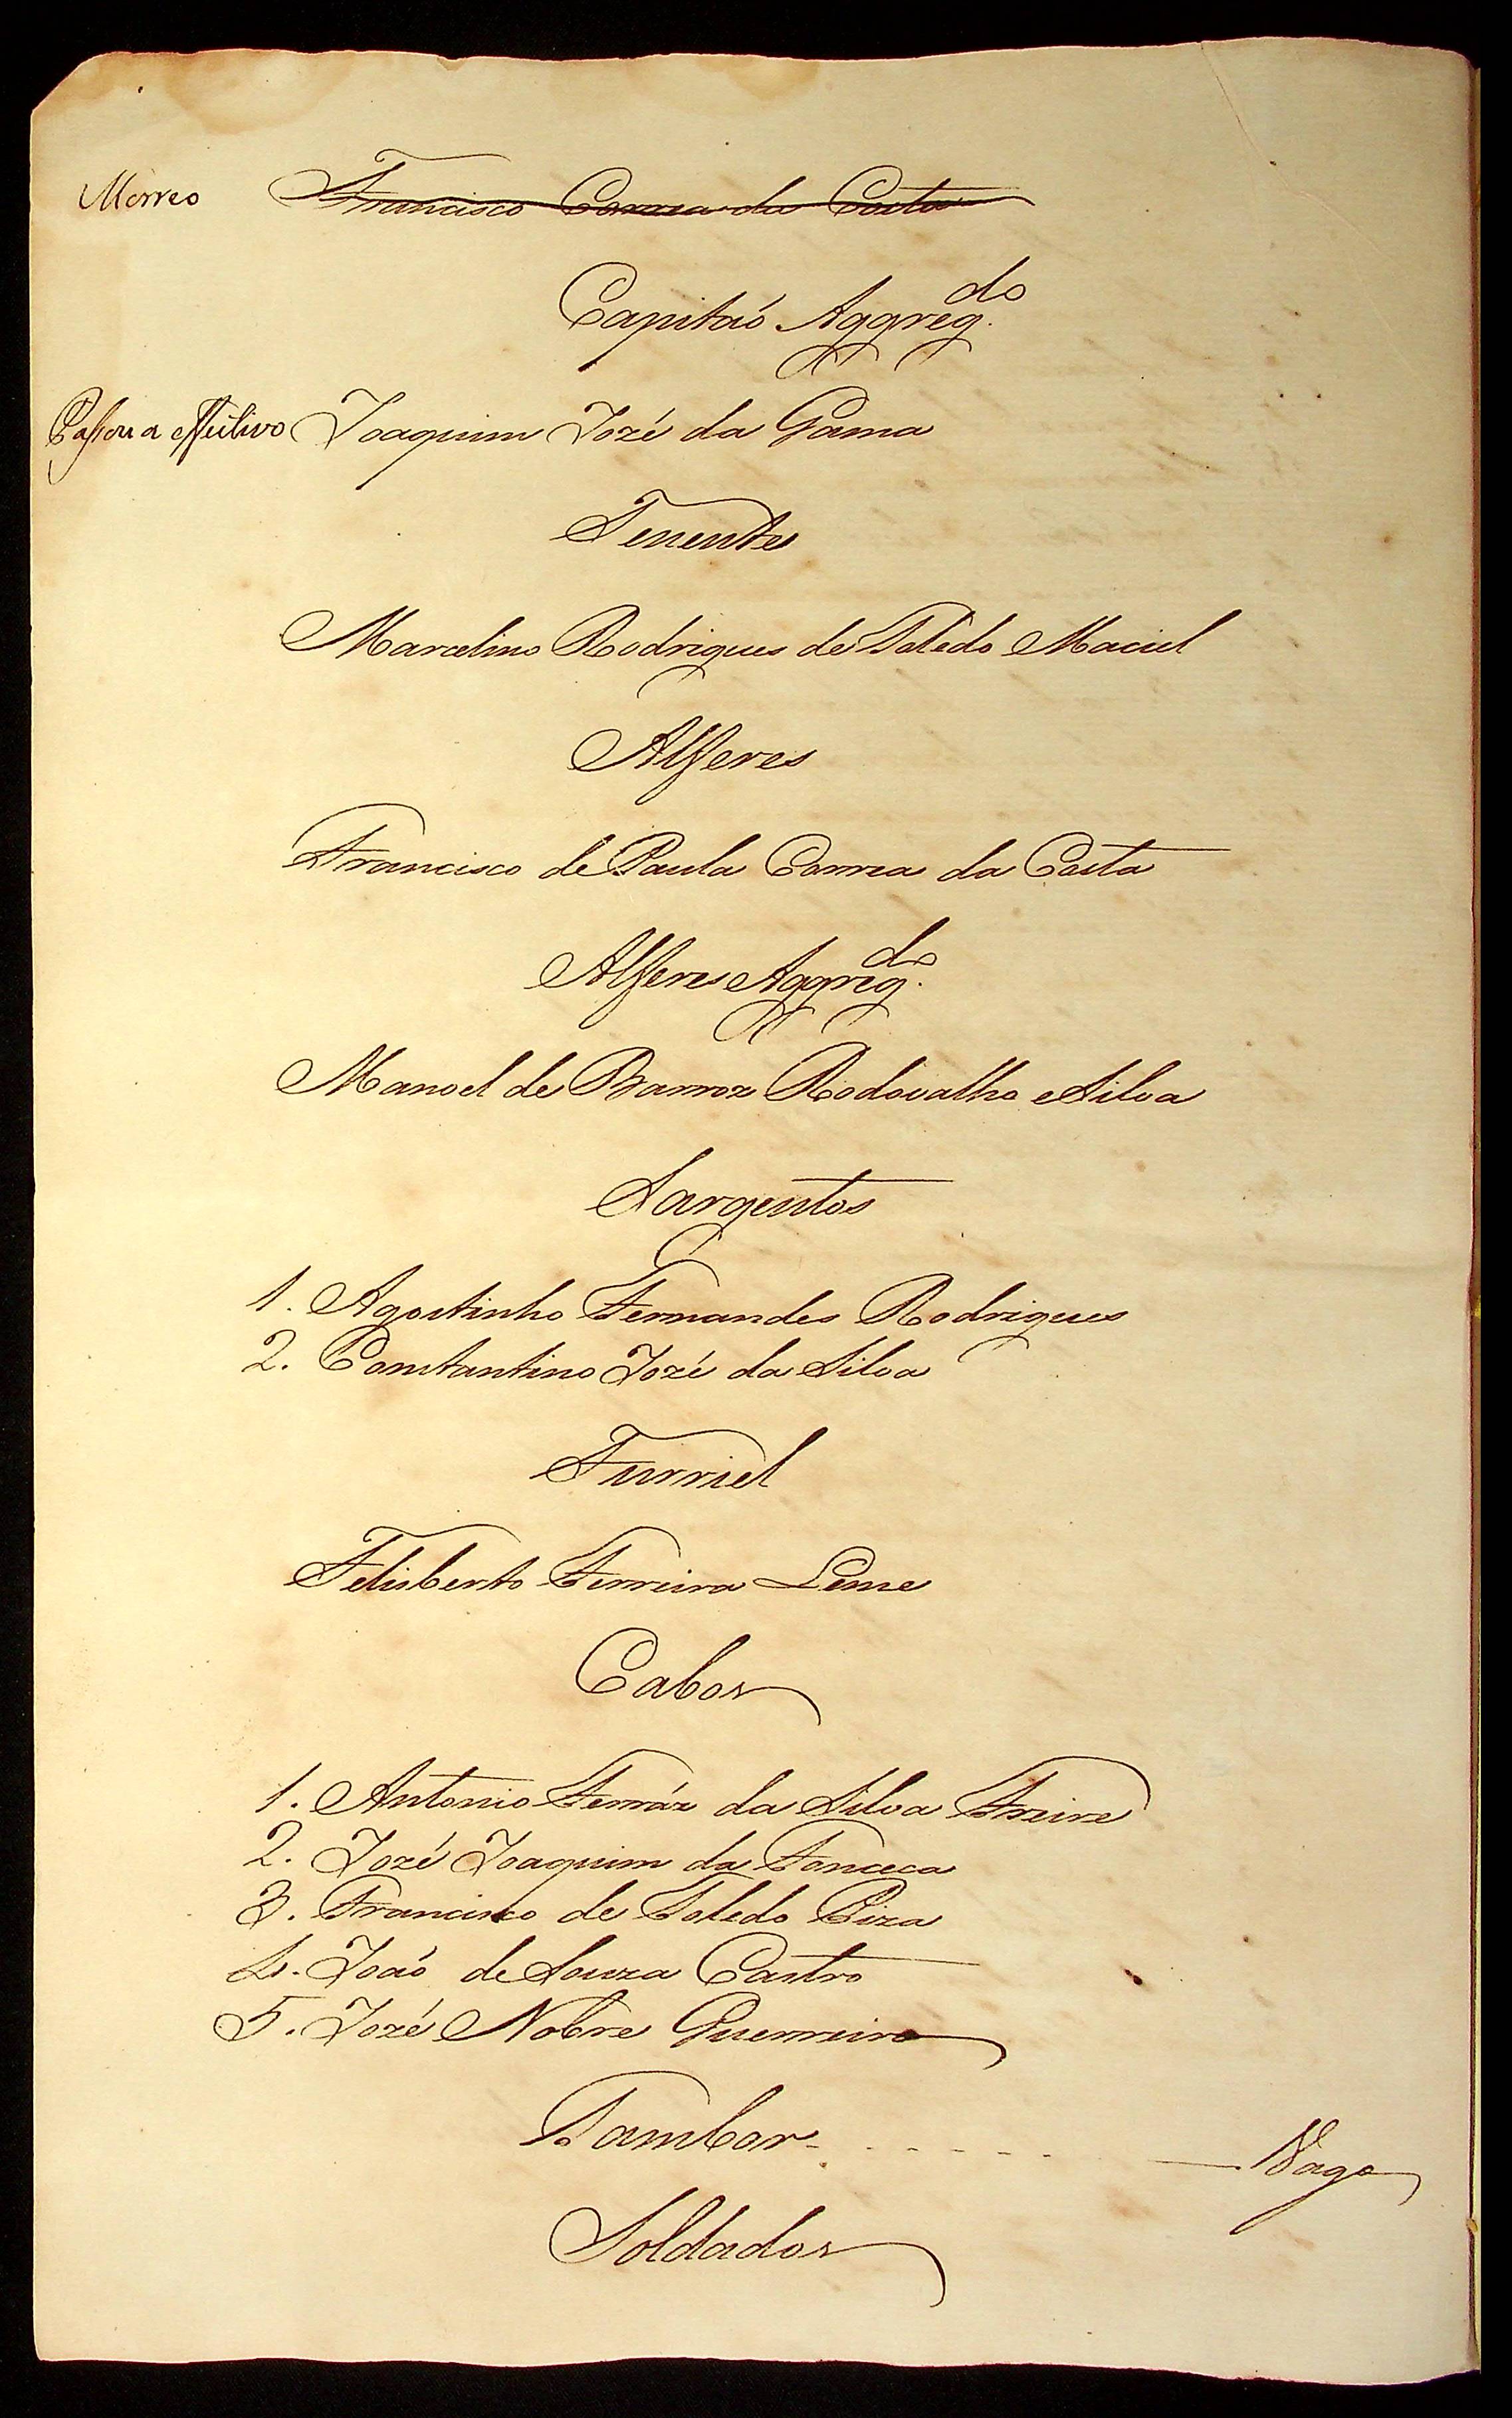 Morreo Francisco Correa da Costa
Capitaó Aggreg.do
Passou a effectivo Joaquim Jozé da Gama
Tenente
Marcelino Rodrigues de Toledo Maciel
Alferes
Francisco de Paula Correa da Costa
Alferes Aggreg.do
Manoel de Barroz Rodovalho e Silva
Sargentos
1. Agostinho Fernandes Rodrigues
2. Constantino Jozé da Silva
Furriel
Felisberto Ferreira Leme
Cabos
1. Antonio Ferráz da Silva Freire
2. Jozé Joaquim da Fonceca
3. Francisco de Toledo Piza
4. Joaó de Souza Castro
5. Jozé Nobre Guerreiro
Tambor - - - - - - - Vago
Soldados